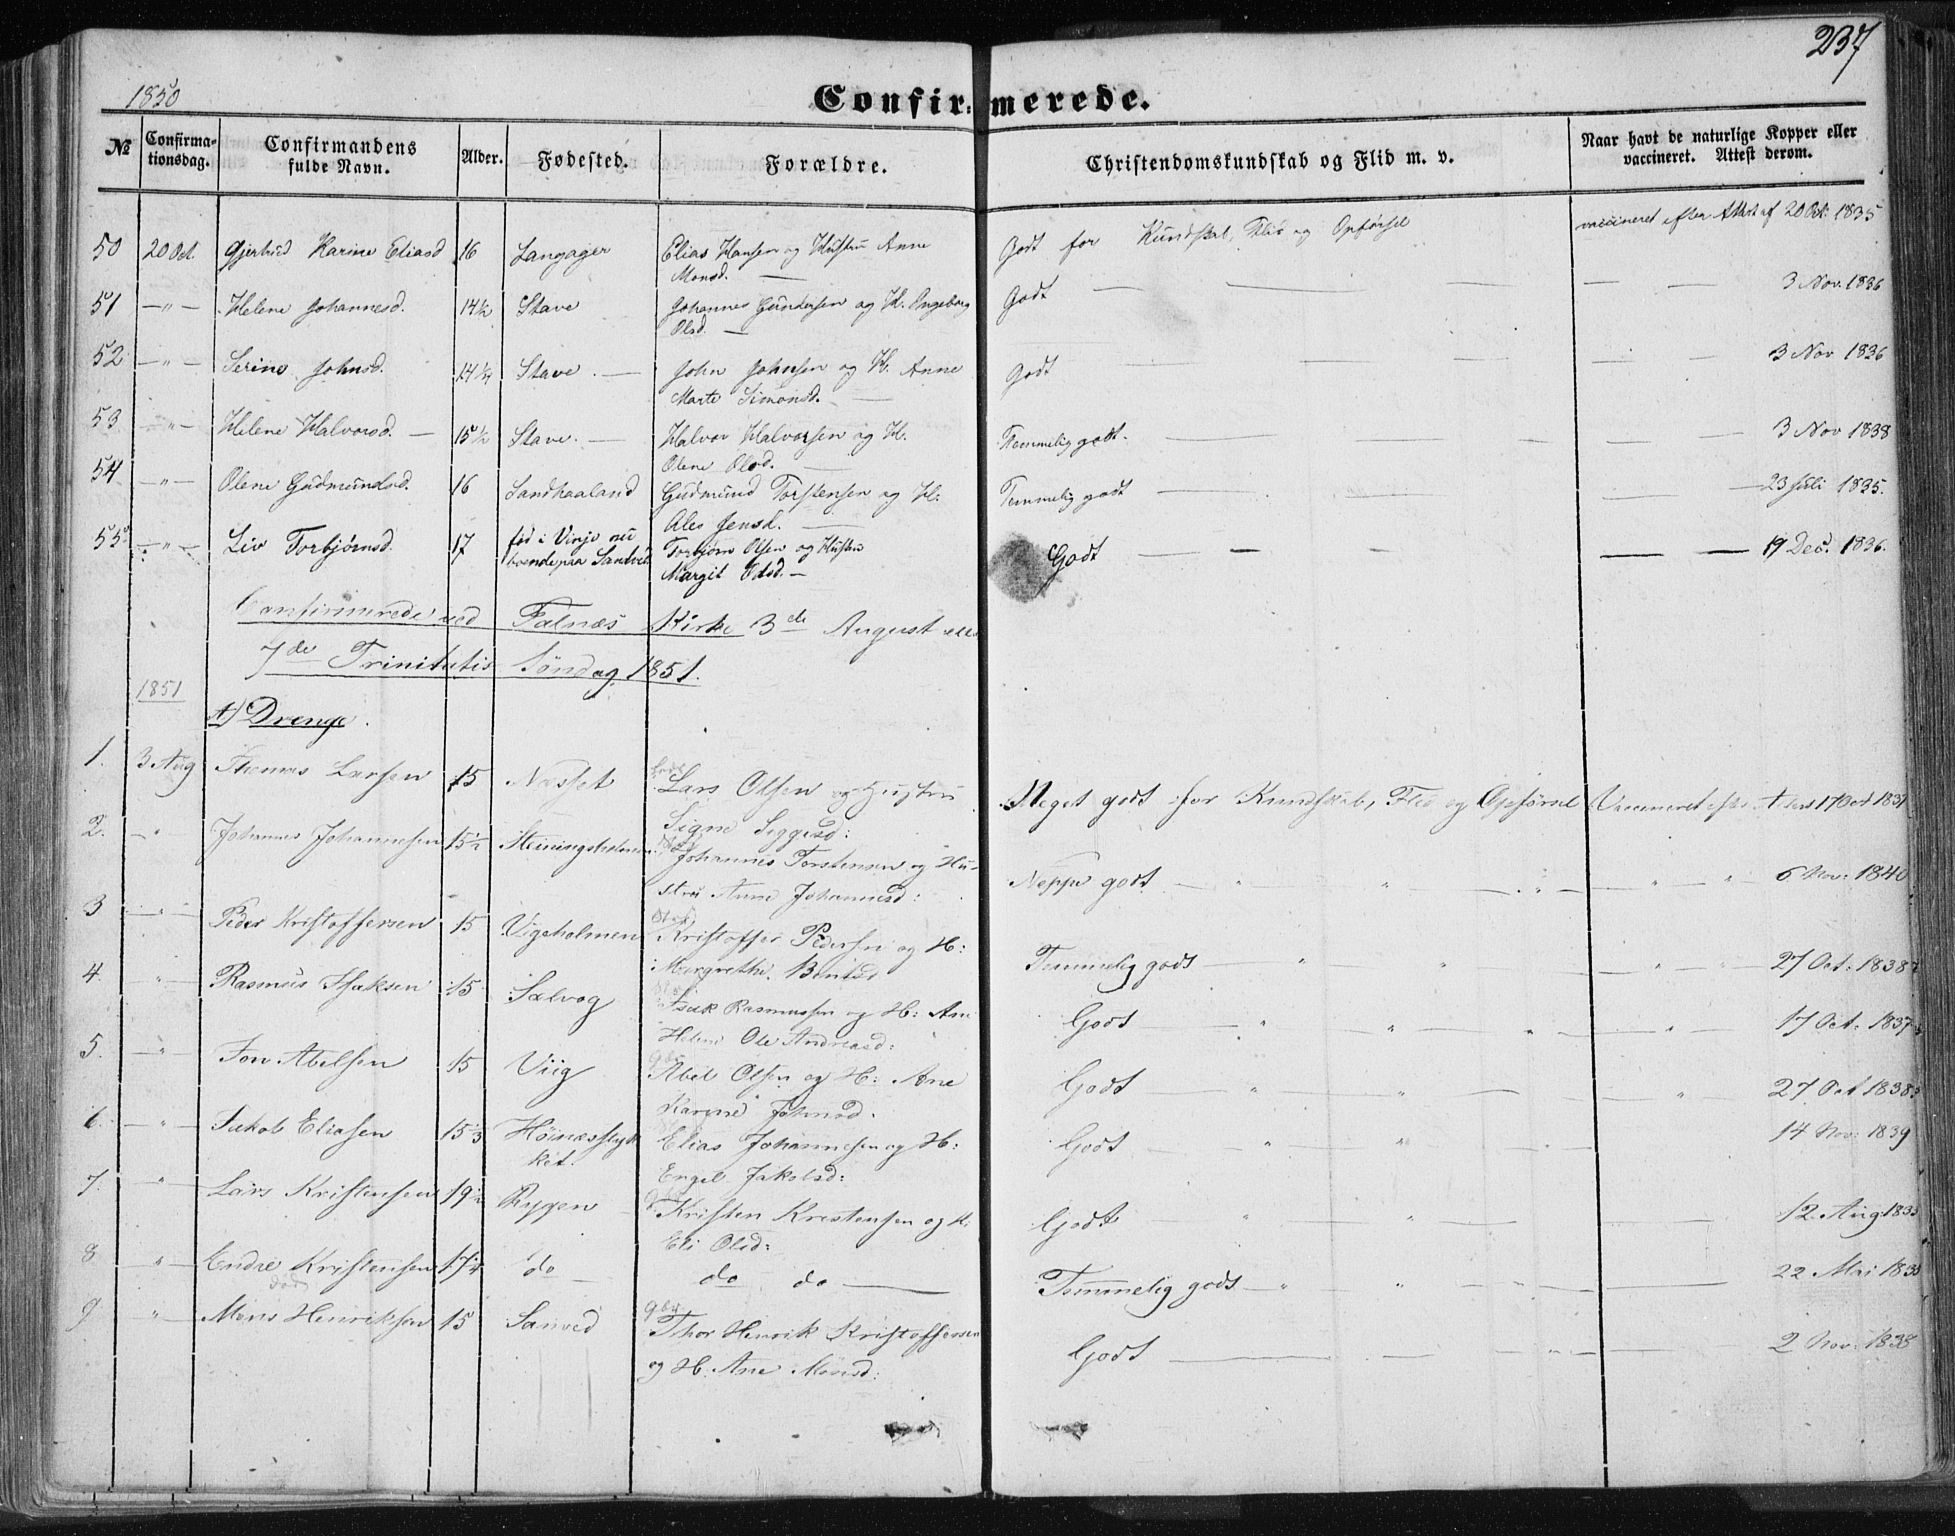 237
1850
Confirmerede.
№ Confirmationsdag. Confirmandens fulde Navn. Alder. Fødested. Forældre. Christendomskundskab og Flid m. v. Naar havt de naturlige Kopper eller vaccineret. Attest derom.
50 20 Oct. Gjertrud Karine Eliasd 16 Langager Elias Hansen og Hustru Anne Godt for Kundskab, Flid og Opførsel vaccineret efter Attest af 20 Oct. 1835
Monsd. —
51 —"— Helene Johannesd. 14½ Stave Johannes Gundersen og H. Ingeborg Godt — — — 3 Nov. 1836
Olsd. —
52 —"— Serine Johnsd. 14¼ Stave. — John Johnsen og H. Anne Godt — — — 3 Nov 1836
Marte Simonsd. —
53 —"— Helene Halvorsd. — 15½ Stave. — Halvor Halvorsen og H. Temmelig godt. — — — 3 Nov 1838
Olene Olsd. —
54 —"— Olene Gudmundsd. 16 Sandhaaland Gudmund Torstensen og H. Temmelig godt — — — 23 Juli 1835.
Ales Jensd. —
55 —"— Liv Torbjørnsd. 17 fød i Vinje nu Torbjørn Olsen og Hustru Godt — — — 19 Dec. 1836.
boende paa Sandvid Margit Olsd. —
Confirmerede ved Falnæs Kirke 3de August
7de Trinitatis Søndag 1851.
1851
A) Drenge.
1. 3 Aug Thomas Larsen 15 Næsset Lars Olsen og Hustru Meget godt for Kundskab, Flid og Opførsel Vaccineret efter Attest 17 Oct 1837
Signe Siggesd:
2. " Johannes Johannesen 15½ Steiningsholmen Johannes Torstensen og Hu- Neppe godt — " " — " — " " 6 Nov: 1840
stru Anne Johannesd:
3 —"— Peder Kristoffersen 15 Vigeholmen Kristoffer Pedersen og H: Temmelig godt — " " — " — " 27 Oct: 1838
Margrethe
4. " Rasmus Isaksen 15 Salvog Isak Rasmussen og H: Ane Godt — " " " — 17 Oct: 1837
Helene Ole Andreasd:
5. —"— Jon Abelsen 15 Viig Abel Olsen og H: Ane Godt " " — " 27 Oct 1838
Karine Johnsd.
6. —"— Jakob Eliasen 15⅓ Høinæsstykket. Elias Johannesen og H: Godt " " 14 Nov: 1839
Engel Jakobsd:
7. " Lars Kristensen 19½ Rygen Kristen Kristensen og H: Godt " " 12 Aug
Eli Olsd:
8 —"— Endre Kristensen 17¼ do — do do — Temmelig godt — " " — 22 Mai
død
9 " Mons Henriksen 15 Sanved Thor Henrik Kristoffersen Godt — — " — 2 Nov: 1838
og H: Ane Monsd: